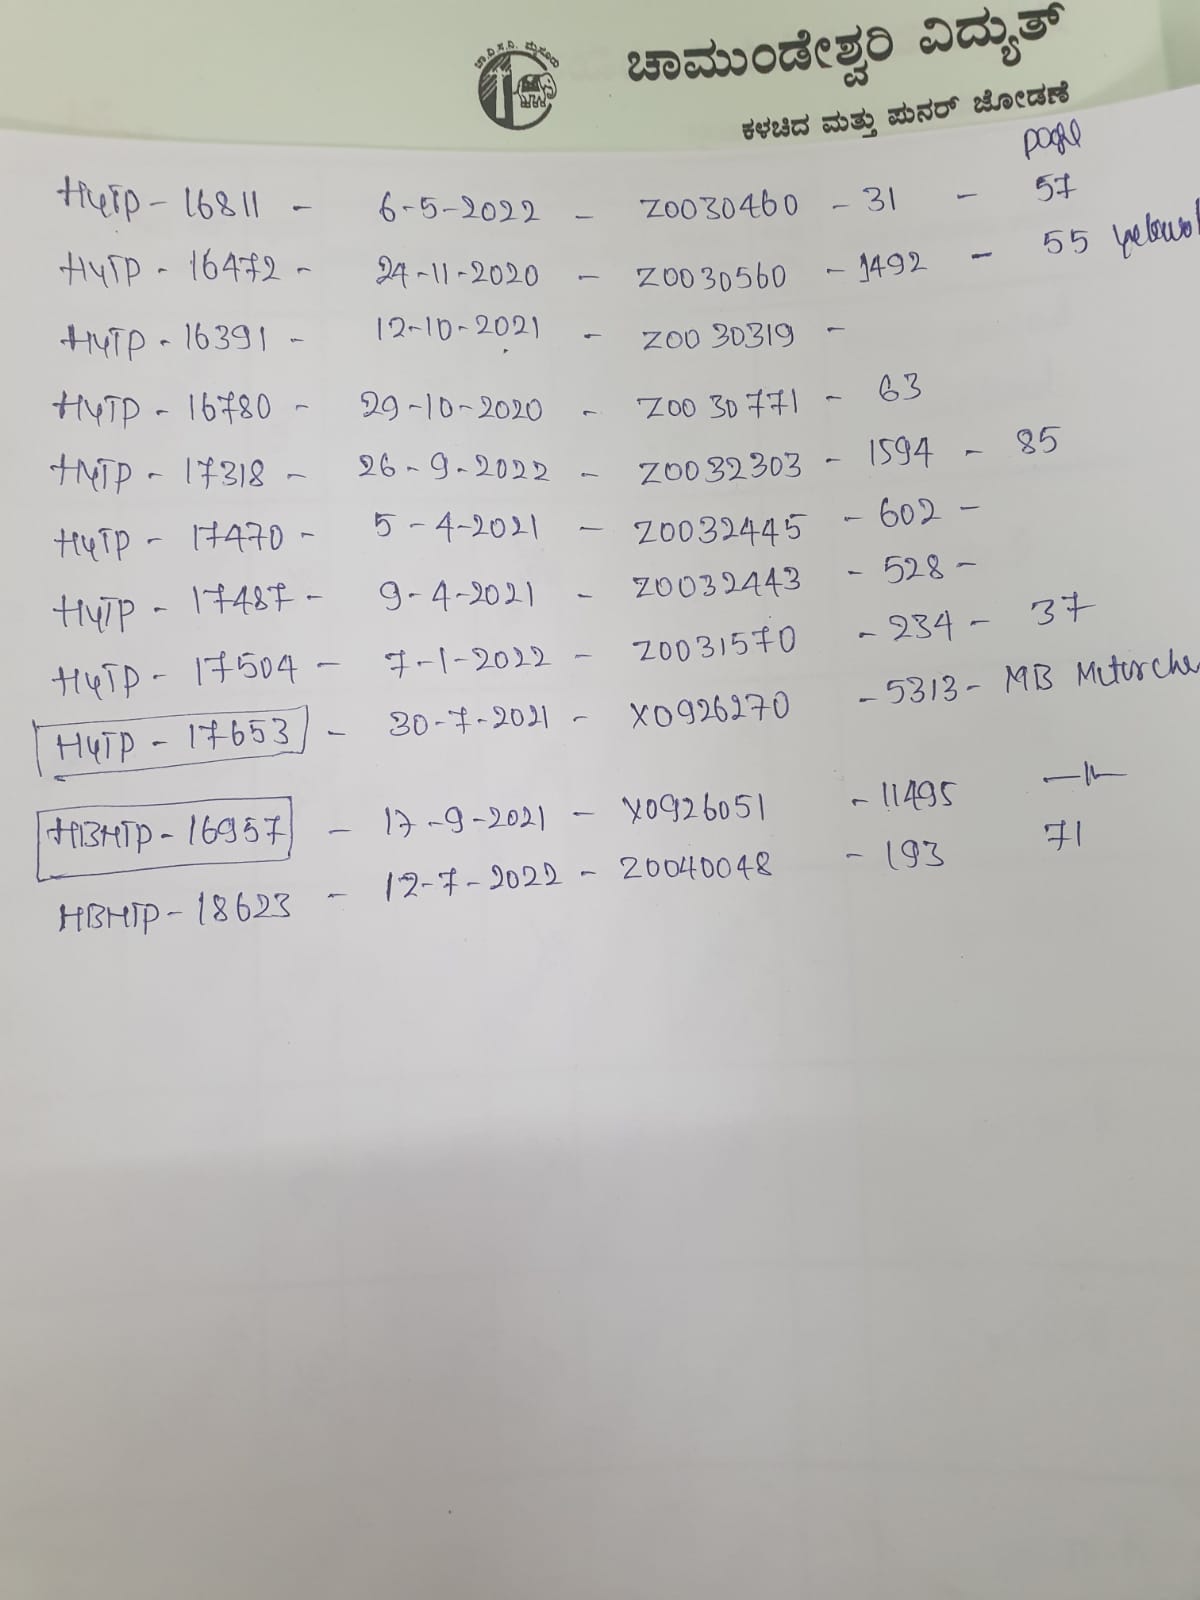 ಚಾ.ವಿ.ಸ.ನಿ. ಮೈಸೂರು
ಚಾಮುಂಡೇಶ್ವರಿ ವಿದ್ಯುತ್
ಕಳಚಿದ ಮತ್ತು ಪುನರ್ ಜೋಡಣೆ
page
HYTP - 16811 - 6-5-2022 - Z0030460 - 31 - 57
HYTP - 16472 - 24-11-2020 - Z0030560 - 1492 - 55
HYTP - 16391 - 12-10-2021 - Z0030319 -
HYTP - 16780 - 29-10-2020 - Z0030771 - 63
HYTP - 17318 - 26-9-2022 - Z0032303 - 1594 - 85
HYTP - 17470 - 5-4-2021 - Z0032445 - 602 -
HYTP - 17487 - 9-4-2021 - Z0032443 - 528 -
HYTP - 17504 - 7-1-2022 - Z0031570 - 234 - 37
HYTP - 17653 - 30-7-2021 - X0926270 - 5313 - MB
HBHTP - 16957 - 17-9-2021 - X0926051 - 11495 —〃—
HBHTP - 18623 - 12-7-2022 - Z0040048 - 193 71